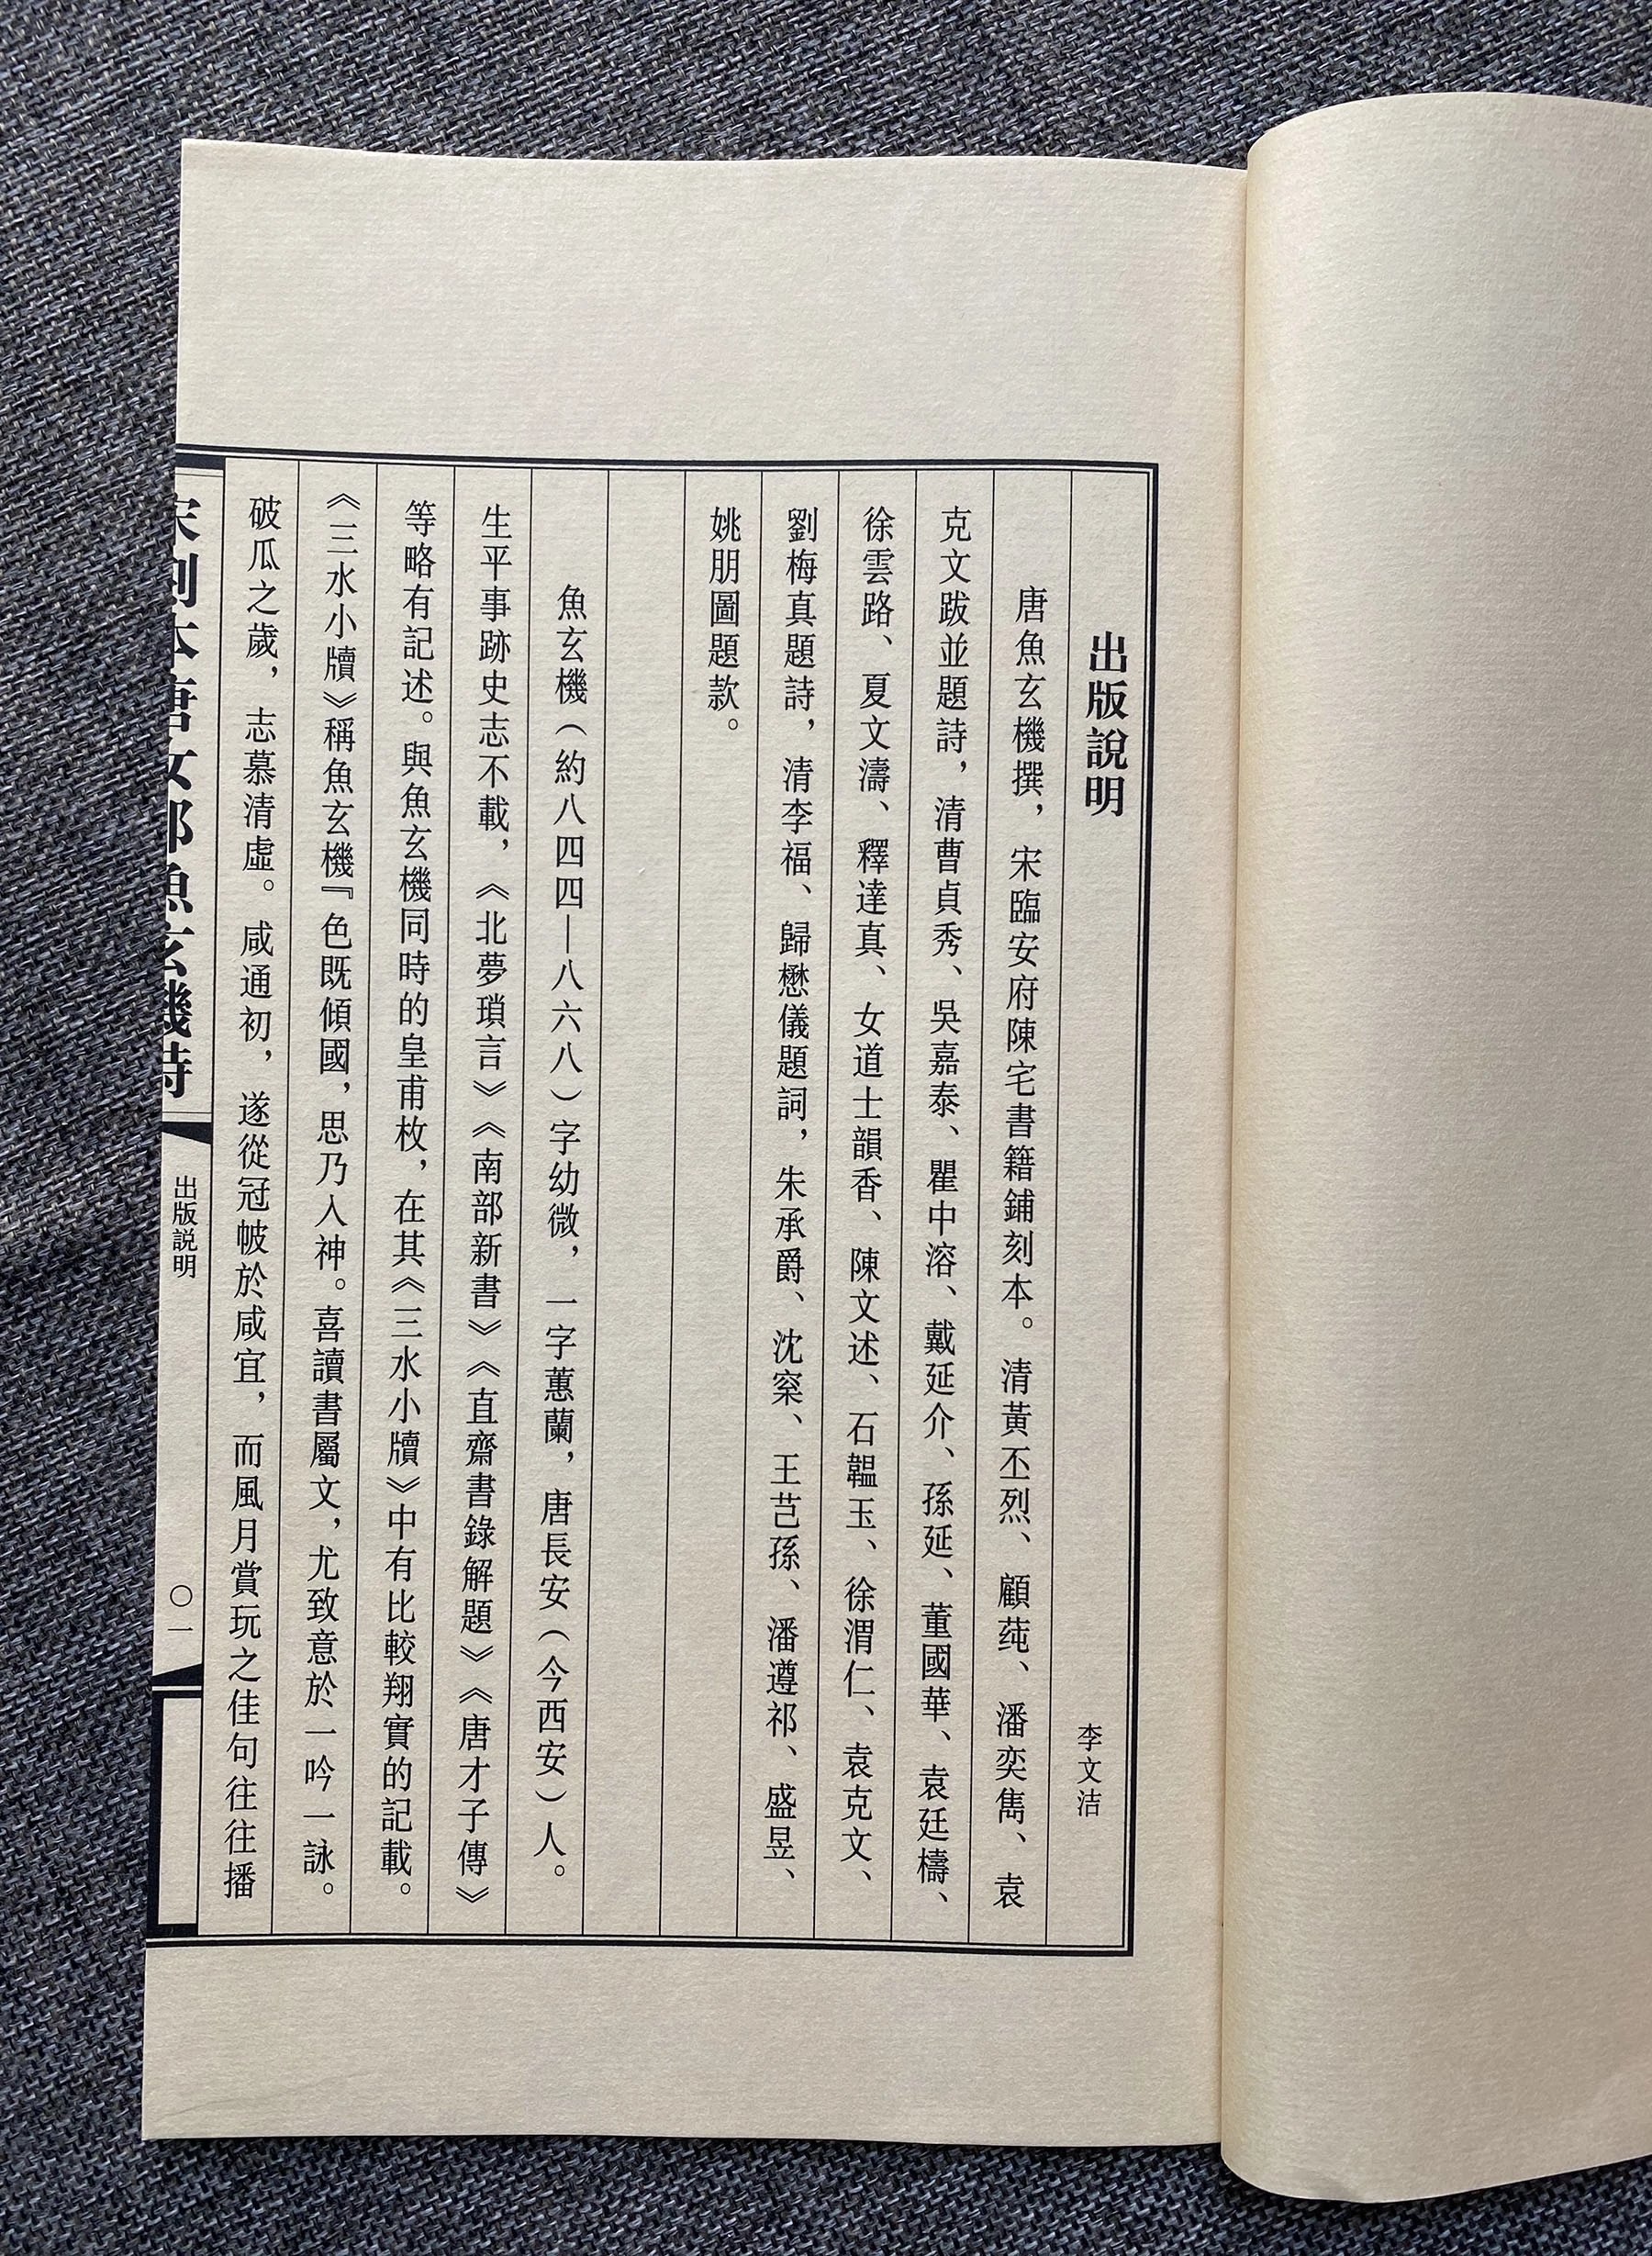 出版說明
李文洁
唐魚玄機撰，宋臨安府陳宅書籍鋪刻本。清黃丕烈、顧蒓、潘奕雋、袁
克文跋並題詩，清曹貞秀、吳嘉泰、瞿中溶、戴延介、孫延、董國華、袁廷檮、
徐雲路、夏文濤、釋達真、女道士韻香、陳文述、石韞玉、徐渭仁、袁克文、
劉梅真題詩，清李福、歸懋儀題詞，朱承爵、沈寀、王芑孫、潘遵祁、盛昱、
姚朋圖題款。
魚玄機（約八四四—八六八）字幼微，一字蕙蘭，唐長安（今西安）人。
生平事跡史志不載，《北夢瑣言》《南部新書》《直齋書錄解題》《唐才子傳》
等略有記述。與魚玄機同時的皇甫枚，在其《三水小牘》中有比較翔實的記載。
《三水小牘》稱魚玄機『色既傾國，思乃入神。喜讀書屬文，尤致意於一吟一詠。
破瓜之歲，志慕清虛。咸通初，遂從冠帔於咸宜，而風月賞玩之佳句往往播
宋刻本唐女郎魚玄機詩
出版説明
〇一